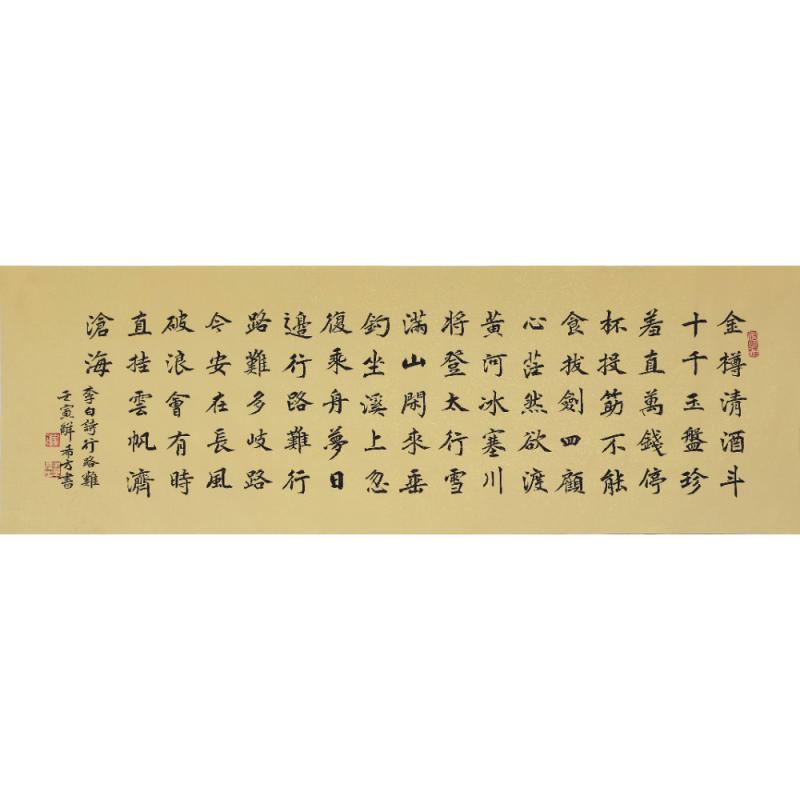 金樽清酒斗
十千玉盤珍
羞直萬錢停
杯投筯不能
食拔劍四顧
心茫然欲渡
黃河冰塞川
將登太行雪
滿山閑來垂
釣坐溪上忽
復乘舟夢日
邊行路難行
路難多岐路
今安在長風
破浪會有時
直挂雲帆濟
滄海
李白詩行路難
壬寅解希方書